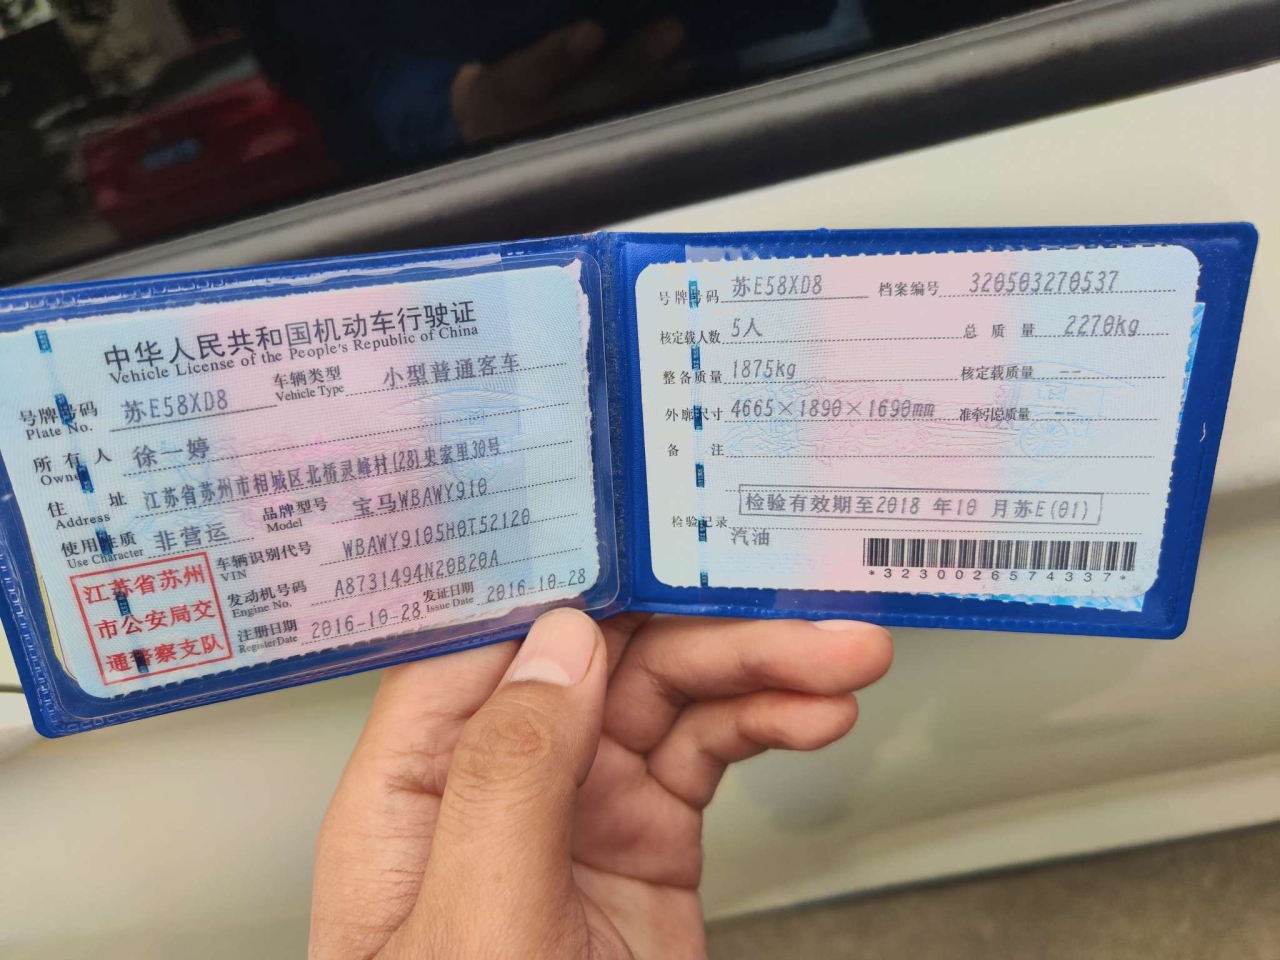 中华人民共和国机动车行驶证
Vehicle License of the People's Republic of China
号牌号码 苏E58XD8 车辆类型 小型普通客车
Plate No. Vehicle Type
所有人 徐一婷
Owner
住址 江苏省苏州市相城区北桥灵峰村(28)史家里30号
Address
使用性质 非营运 品牌型号 宝马WBAWY910
Use Character Model
车辆识别代号 WBAWY9105H0T52120
VIN
发动机号码 A8731494N20B20A
Engine No.
注册日期 2016-10-28 发证日期 2016-10-28
Register Date Issue Date
江苏省苏州
市公安局交
通警察支队
号牌号码 苏E58XD8 档案编号 320503270537
核定载人数 5人 总质量 2270kg
整备质量 1875kg 核定载质量 --
外廓尺寸 4665×1890×1690mm 准牵引总质量 --
备注
检验有效期至2018 年10 月苏E(01)
检验记录
汽油
*3230026574337*